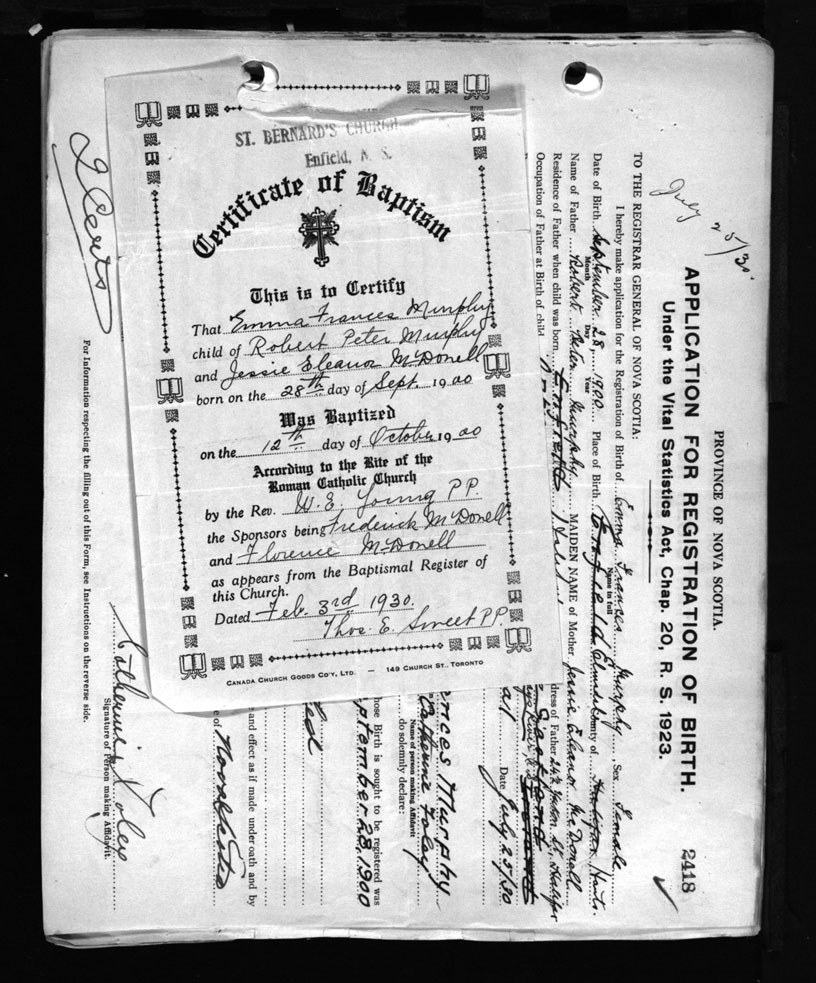 ST. BERNARD'S CHURCH
Enfield, N. S.
Certificate of Baptism
This is to Certify
That Emma Frances Murphy
child of Robert Peter Murphy
and Jessie Eleanor McDonell
born on the 28th day of Sept. 1900
Was Baptized
on the 12th day of October 1900
According to the Rite of the
Roman Catholic Church
by the Rev. W. E. Young P.P.
the Sponsors being Frederick McDonell
and Florence McDonell
as appears from the Baptismal Register of
this Church.
Dated Feb. 3rd 1930.
Thos. E. Sweet P.P.
CANADA CHURCH GOODS CO'Y, LTD. — 149 CHURCH ST., TORONTO
July 25/30
PROVINCE OF NOVA SCOTIA.
APPLICATION FOR REGISTRATION OF BIRTH. 2418
Under the Vital Statistics Act, Chap. 20, R. S. 1923.
TO THE REGISTRAR GENERAL OF NOVA SCOTIA:
I hereby make application for the Registration of Birth of Emma Frances Murphy, Sex Female
Name in full
Date of Birth September 28, 1900 Place of Birth Enfield County of Halifax Hants.
Month Day Year
Name of Father Robert Peter Murphy MAIDEN NAME of Mother Jessie Eleanor McDonell
Residence of Father when child was born Enfield dress of Father Halifax
Occupation of Father at Birth of child
Date July 25/30
nces Murphy
Catherine Foley
Name of person making Affidavit
do solemnly declare:
hose Birth is sought to be registered was
ptember 28, 1900
and effect as if made under oath and by
e of Nova Scotia
Catherine Foley
Signature of Person making Affidavit.
For Information respecting the filling out of this Form, see Instructions on the reverse side.
2 Certs